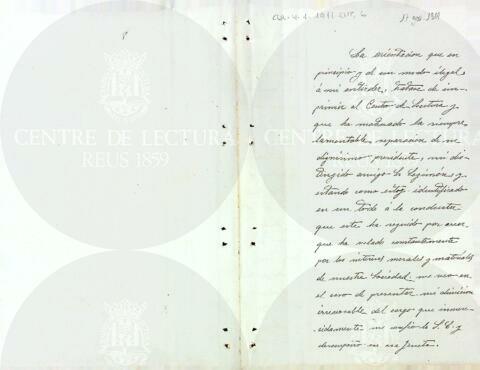 17 ago. 1911
La orientación que en
principio y de un modo ilegal,
á mi entender, tratase de im-
primir al Centro de Lectura y
que ha motivado la siempre
lamentable separación de su
dignísimo presidente, mi dis-
tinguido amigo Sr.
estando como estoy identificado
en un todo á la conducta
que este ha seguido por creer
que ha velado constantemente
por los intereses morales y materiales
de nuestra Sociedad me veo en
el caso de presentar mi dimisión
irrevocable del cargo que inmere-
cidamente me confió la S. C. y
desempeño en esa Junta.
CENTRE DE LECTURA
REUS 1859
CENTRE DE LECTURA
REUS 1859